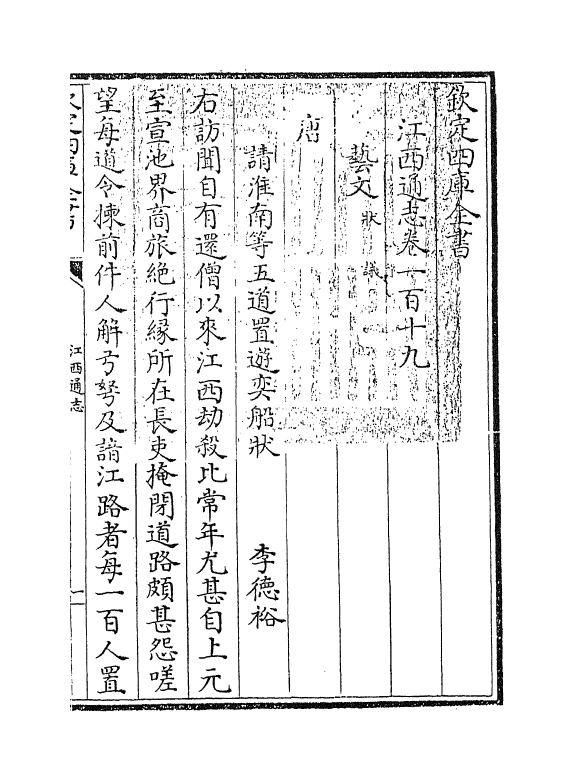 欽定四庫全書
江西通志卷一百十九
藝文 狀 議
唐
請淮南等五道置遊奕船狀 李德裕
右訪聞自有還僧以來江西劫殺比常年尤甚自上元
至宣池界商旅絶行緣所在長吏掩閉道路頗甚怨嗟
望每道令揀前件人解弓弩及諳江路者每一百人置
江西通志
一